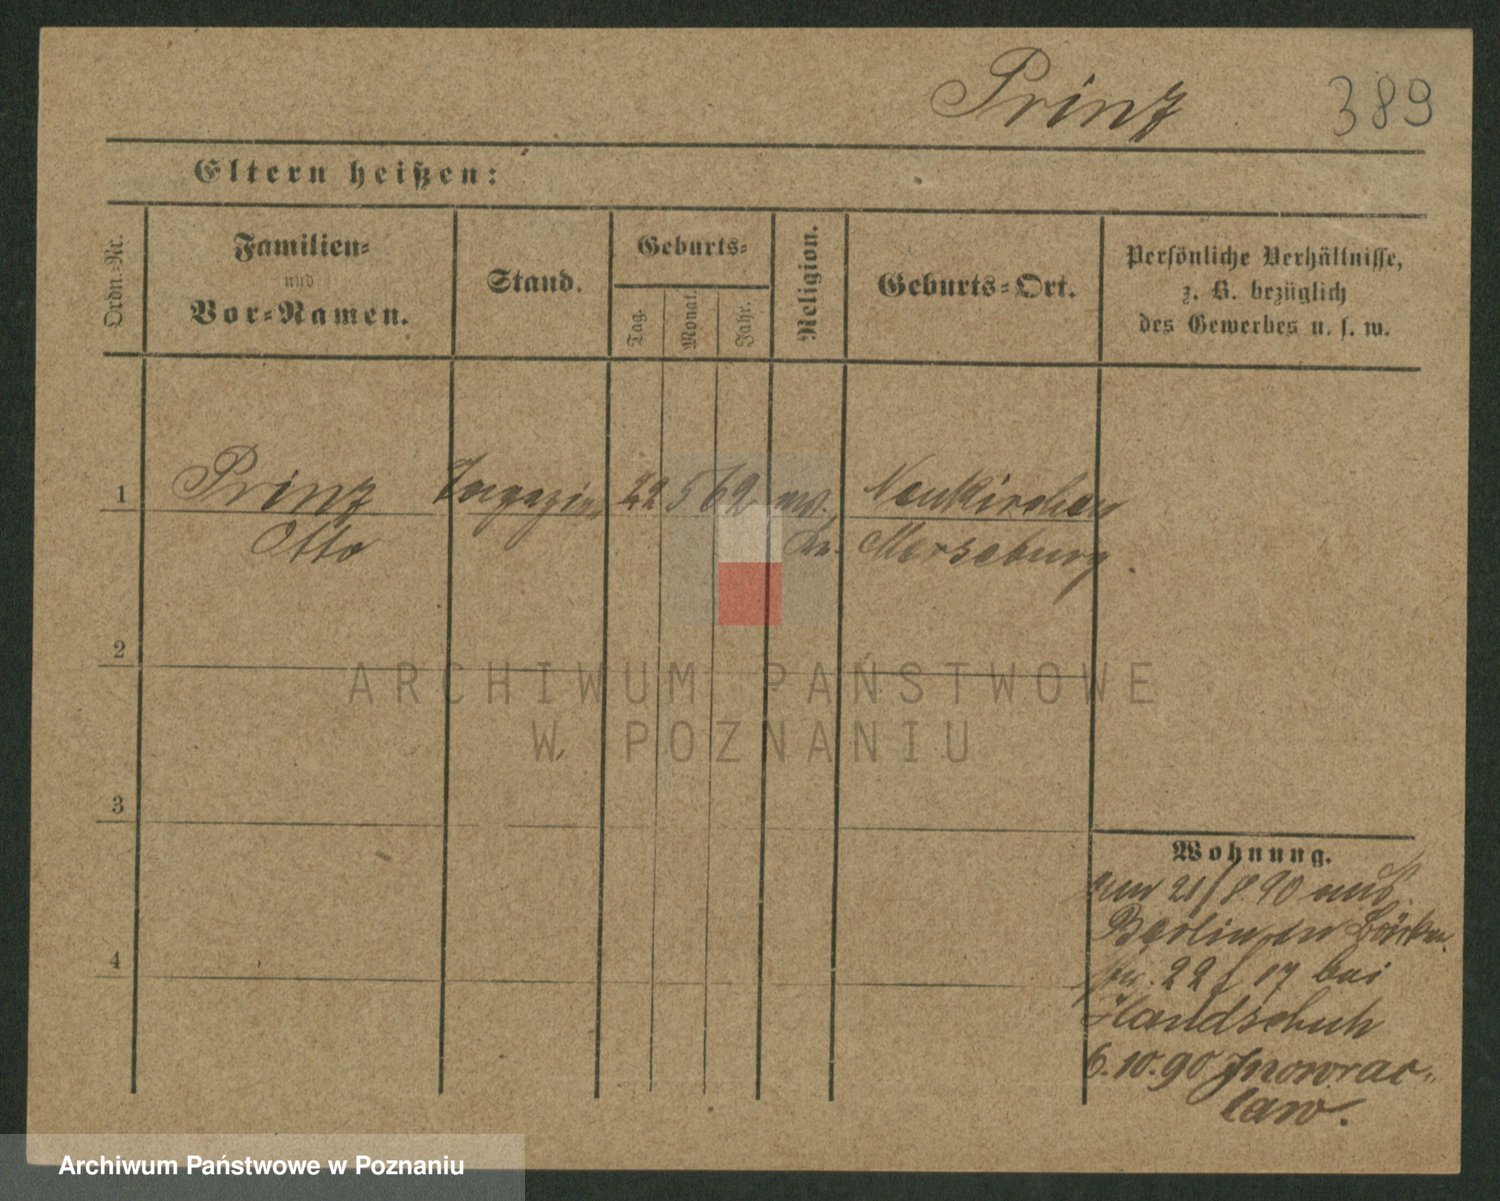 Prinz 389
Eltern heißen:
Ordn.-Nr.
Familien-
und
Vor-Namen.
Stand.
Geburts-
Tag.
Monat.
Jahr.
Religion.
Geburts-Ort.
Persönliche Verhältnisse,
z. B. bezüglich
des Gewerbes u. s. w.
1 Prinz 22 5 62 Neukirchen
Otto Merseburg.
2
ARCHIWUM PAŃSTWOWE
W POZNANIU
3
Wohnung.
21/8.90 aus
Berlin
22 17 bei
Handschuh
4
6.10.90 Inowrac-
law.
Archiwum Państwowe w Poznaniu